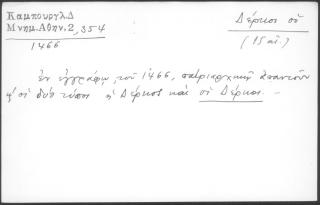 Καμπουργλ.Δ
Μνημ.Αθην.2,354
1466
Δέρκοι οἱ
(15 αἰ.)
ἐν ἐγγράφῳ τοῦ 1466, πατριαρχικῇ ἀπαντοῦν
οἱ δύο τύποι ἡ Δέρκος καὶ οἱ Δέρκοι. -